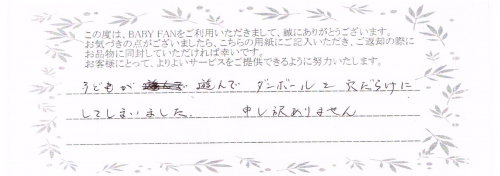 この度は、BABY FANをご利用いただきまして、誠にありがとうございます。
お気づきの点がございましたら、こちらの用紙にご記入いただき、ご返却の際に
お品物に同封していただければ幸いです。
お客様にとって、よりよいサービスをご提供できるように努力いたします。
子どもが 遊んで ダンボールを 穴だらけに
してしまいました. 申し訳ありません